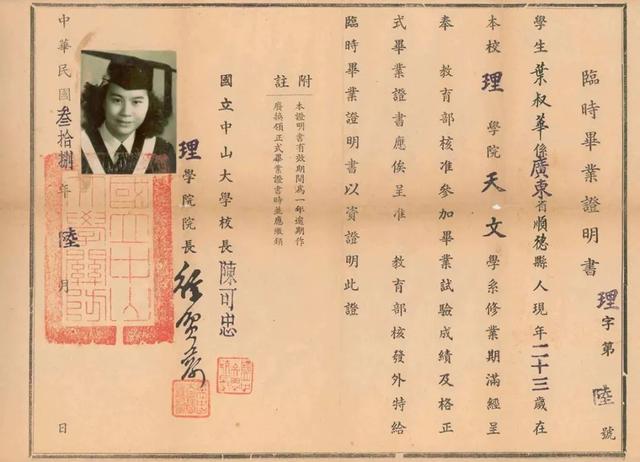 臨時畢業證明書
理字第陸號
學生葉叔華係廣東省順德縣人現年二十三歲在
本校理學院天文學系修業期滿經呈
奉教育部核准參加畢業試驗成績及格正
式畢業證書應俟呈准教育部核發外特給
臨時畢業證明書以資證明此證
附註
本證明書有效期間為一年逾期作
廢換領正式畢業證書時並應繳銷
國立中山大學校長陳可忠
理學院院長
中華民國叁拾捌年陸月日